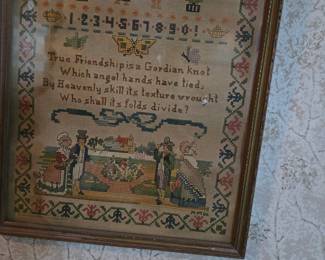 1234567890
True Friendship is a Gordian knot
Which angel hands have tied,
By Heavenly skill its texture wrought
Who shall its folds divide?